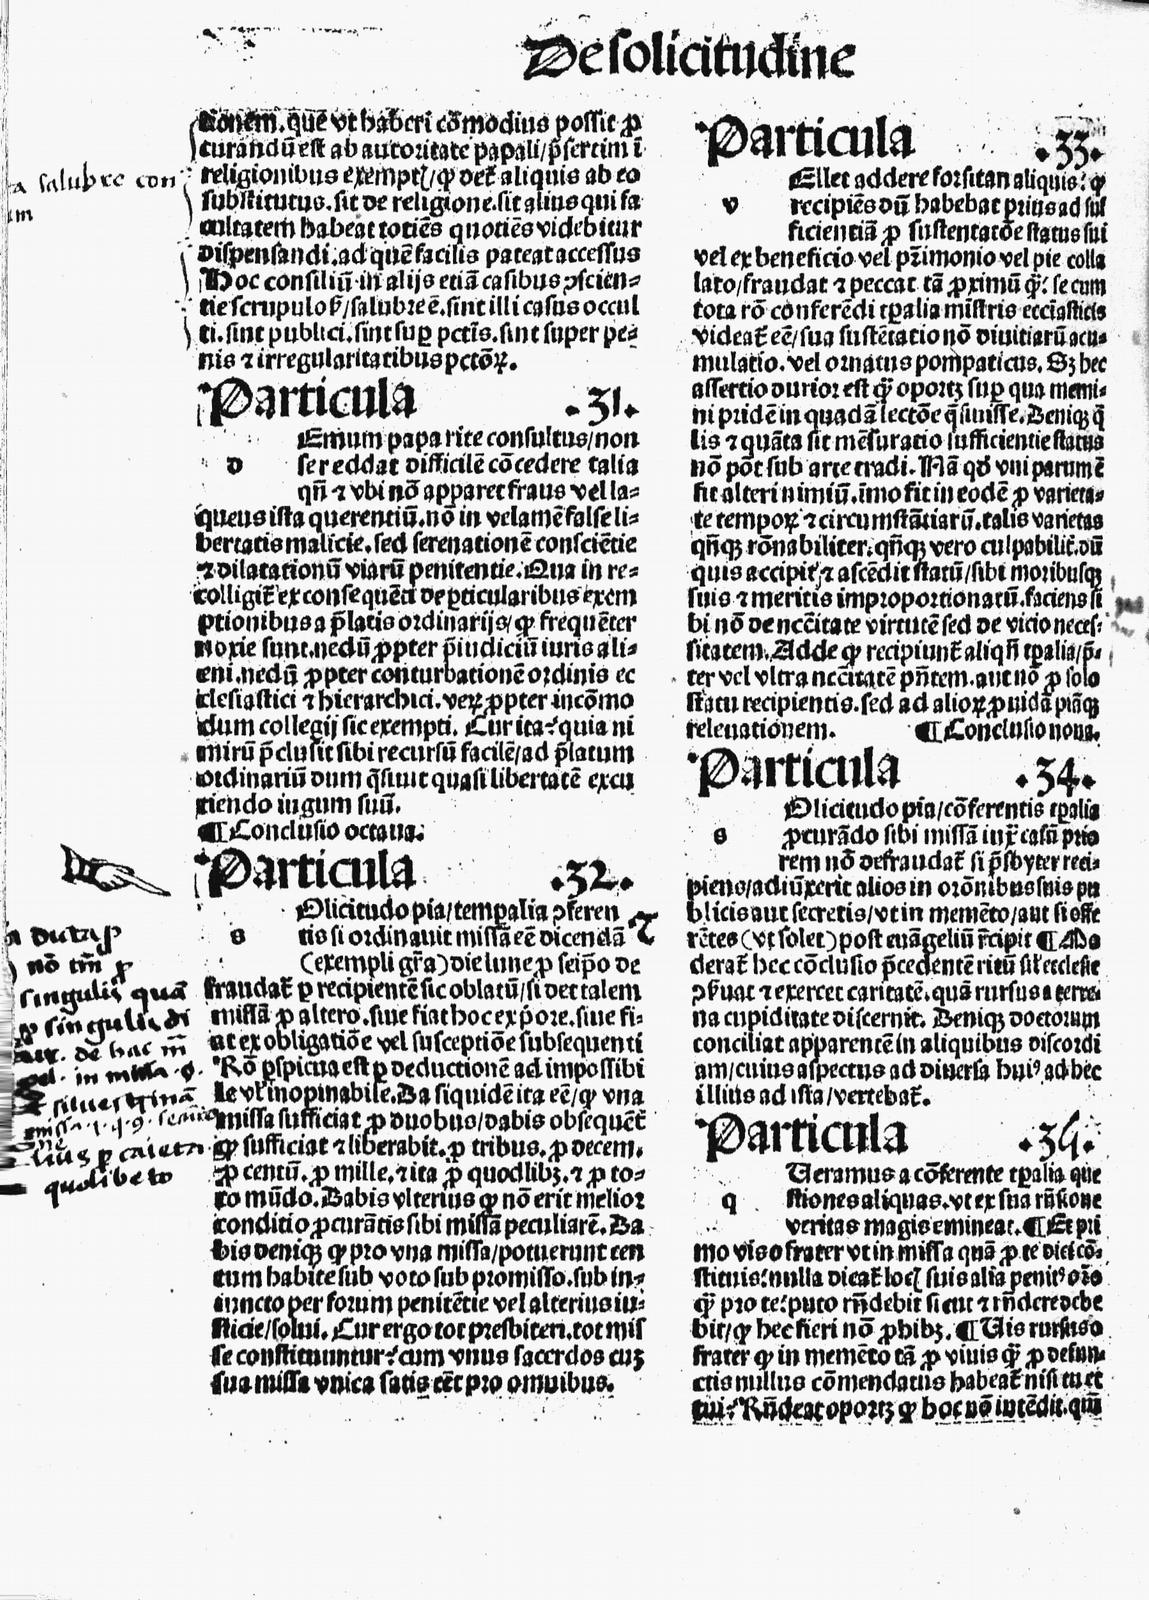 De solicitudine
tionem. quē vt haberi cōmodius possit ꝓ
curandū est ab autoritate papali/p̄sertim ī
religionibus exemptꝭ/ꝙ det̄ aliquis ab eo
substitutus. sit de religione. sit alius qui fa
cultatem habeat totiēs quotiēs videbitur
dispensandi. ad quē facilis pateat accessus
Hoc consiliū in alijs etiā casibus ꝯscien-
tie scrupuloꝝ/salubre ē. sint illi casus occul
ti. sint publici. sint suꝑ pctīs. sint super pe-
nis ⁊ irregularitatibus pctōꝝ.
Particula .31.
Emum papa rite consultus/non
d se reddat difficilē cōcedere talia
qn̄ ⁊ vbi nō apparet fraus vel la-
queus ista querentiū. nō in velamē false li-
bertatis malicie. sed serenationē consciētie
⁊ dilatationū viarū penitentie. Qua in re-
colligit̄ ex consequēti de ꝑticularibus exem
ptionibus a p̄latis ordinarijs/ꝙ frequēter
noxie sunt. nedū ꝓpter p̄iudiciū iuris ali-
eni. nedū ꝓpter conturbationē ordinis ec
clesiastici ⁊ hierarchici. veꝝ ꝓpter incōmo
dum collegij sic exempti. Cur ita? quia ni
mirū p̄clusit sibi recursū facilē/ad p̄latum
ordinariū dum q̄siuit quasi libertatē excu
tiendo iugum suū.
¶ Conclusio octaua.
Particula .32.
Olicitudo pia/temꝑalia ꝯferen
s tis si ordinauit missā eē dicendā
(exempli gr̄a) die lune ꝓ seip̄o de
fraudat̄ ꝑ recipientē sic oblatū/si det talem
missā ꝓ altero. siue fiat hoc ex p̄ore. siue fi-
at ex obligatiōe vel susceptiōe subsequenti
Rō ꝑspicua est ꝑ deductionē ad impossibi
le vl̄ inopinabile. Da siquidē ita eē/ꝙ vna
missa sufficiat ꝓ duobus/dabis obsequēt̄
ꝙ sufficiat ⁊ liberabit. ꝓ tribus. ꝓ decem.
ꝓ centū. ꝓ mille. ⁊ ita ꝓ quodlibꝫ. ⁊ ꝓ to-
to mūdo. Dabis vlterius ꝙ nō erit melior
conditio ꝓcurātis sibi missā peculiarē. Da
bis deniqꝫ ꝙ pro vna missa/potuerunt cen
tum habite sub voto sub promisso. sub in-
iuncto per forum penitētie vel alterius iu-
sticie/solui. Cur ergo tot presbiteri. tot mis
se constituuntur? cum vnus sacerdos cuꝫ
sua missa vnica satis eēt pro omnibus.
Particula .33.
Ellet addere forsitan aliquis: ꝙ
v recipiēs dū habebat prius ad suf
ficientiā ꝓ sustentatōe status sui
vel ex beneficio vel p̄rimonio vel pie colla
lato/fraudat ⁊ peccat tā ꝓximū q̄ꝫ se cum
tota rō conferēdi tꝑalia mīstris eccīasticis
videat̄ eē/sua sustētatio nō diuitiarū acu-
mulatio. vel ornatus pompaticus. Sꝫ hec
assertio durior est q̄ꝫ oportꝫ suꝑ qua memi-
ni pridē in quadā lectōe q̄siuisse. Deniqꝫ q̄
lis ⁊ quāta sit mēsuratio sufficientie status
nō pōt sub arte tradi. Nā qd̄ vni parum ē
fit alteri nimiū. imo fit in eodē ꝓ varieta-
te tempoꝝ ⁊ circumstātiarū. talis varietas
qn̄qꝫ rōnabiliter. qn̄qꝫ vero culpabilit̄. dū
quis accipit ⁊ ascēdit statū/sibi moribusqꝫ
suis ⁊ meritis improportionatū. faciens si
bi nō de nccītate virtutē sed de vicio neces-
sitatem. Adde ꝙ recipiunt̄ aliqn̄ tꝑalia/p̄-
ter vel vltra nccītatē pn̄tem. aut nō ꝓ solo
statu recipientis. sed ad alioꝝ ꝓuidā piāqꝫ
releuationem. ¶ Conclusio nona.
Particula .34.
Olicitudo pia/cōferentis tꝑalia
s ꝓcurādo sibi missā iux̄ casū prio
rem nō defraudat̄ si p̄sbyter reci-
piens/adiūxerit alios in orōnibus suis pu
blicis aut secretis/vt in memēto/aut si offe
rētes (vt solet) post euāgeliū r̄cipit ¶ Mo
derat̄ hec cōclusio p̄cedentē ritū sil̄ ecclesie
ꝯẜuat ⁊ exercet caritatē. quā rursus a terre-
na cupiditate discernit. Deniqꝫ doctorum
conciliat apparentē in aliquibus discordi
am/cuius aspectus ad diuersa huiꝰ ad hec
illius ad ista/vertebat̄.
Particula .35.
Ueramus a cōferente tꝑalia que
q stiones aliquas. vt ex sua rn̄sione
veritas magis emineat. ¶ Et pri
mo viso frater vt in missa quā ꝓ te dici cō-
stituis: nulla dicat̄ locꝭ suis alia penitꝰ orō
q̄ꝫ pro te: puto rn̄debit sicut ⁊ rn̄dere debe
bit/ꝙ hec fieri nō ꝓhibꝫ. ¶ Uis rursus o
frater ꝙ in memēto tā ꝓ viuis q̄ꝫ ꝓ defun-
ctis nullus cōmendatus habeat̄ nisi tu et
tui? Rn̄deat oportꝫ ꝙ hoc nō intēdit. qm̄
a salubre con
m
nō tm̄ ꝓ
singulis quā
ꝓ singulis di
de hac m̄
in missa
siluestrinā
caieta
quolibeto